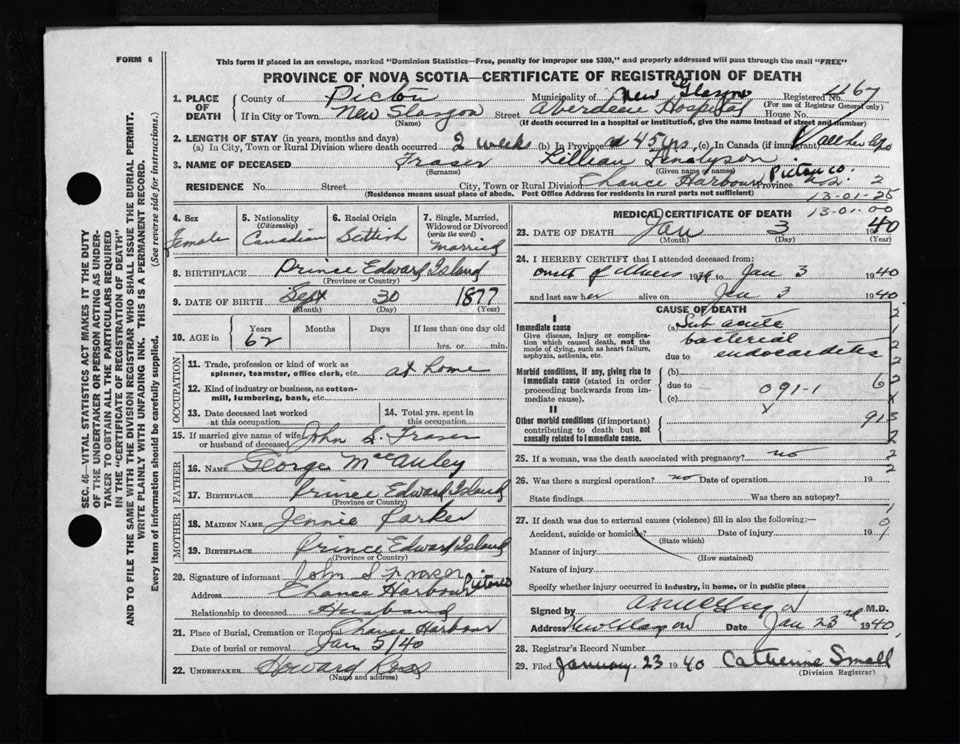 FORM 6
This form if placed in an envelope, marked "Dominion Statistics—Free, penalty for improper use $300," and properly addressed will pass through the mail "FREE"
PROVINCE OF NOVA SCOTIA—CERTIFICATE OF REGISTRATION OF DEATH
1. PLACE OF DEATH County of Pictou Municipality of New Glasgow Registered No. 467
(For use of Registrar General only)
If in City or Town New Glasgow Street Aberdeen Hospital House No.
(Name) (If death occurred in a hospital or institution, give the name instead of street and number)
2. LENGTH OF STAY (in years, months and days)
(a) In City, Town or Rural Division where death occurred 2 weeks (b) In Province 45 yrs. (c) In Canada (if immigrant)
3. NAME OF DECEASED Fraser Lillian Finalyson
(Surname) (Given name or names)
RESIDENCE No. Street City, Town or Rural Division Chance Harbour Pictou Co. Province
(Residence means usual place of abode. Post Office Address for residents in rural parts not sufficient)
13-01-25
13-01-00
4. Sex Female
5. Nationality (Citizenship) Canadian
6. Racial Origin Scottish
7. Single, Married, Widowed or Divorced (write the word) Married
8. BIRTHPLACE Prince Edward Island
(Province or Country)
9. DATE OF BIRTH Sept 30 1877
(Month) (Day) (Year)
10. AGE in Years 62 Months Days If less than one day old
hrs. or min.
OCCUPATION
11. Trade, profession or kind of work as spinner, teamster, office clerk, etc. at home
12. Kind of industry or business, as cotton-mill, lumbering, bank, etc.
13. Date deceased last worked at this occupation
14. Total yrs. spent in this occupation
15. If married give name of wife or husband of deceased John S. Fraser
FATHER
16. NAME George MacAuley
17. BIRTHPLACE Prince Edward Island
(Province or Country)
MOTHER
18. MAIDEN NAME Jennie Parker
19. BIRTHPLACE Prince Edward Island
(Province or Country)
20. Signature of informant John S Fraser
Address Chance Harbour Pictou Co
Relationship to deceased Husband
21. Place of Burial, Cremation or Removal Chance Harbour
Date of burial or removal Jan 5/40
22. UNDERTAKER Howard Ross
(Name and address)
MEDICAL CERTIFICATE OF DEATH
23. DATE OF DEATH Jan 3 1940
(Month) (Day) (Year)
24. I HEREBY CERTIFY that I attended deceased from:
19 to Jan 3 1940
and last saw her alive on Jan 3 1940
CAUSE OF DEATH
I
Immediate cause (a) Sub acute
Give disease, injury or complication which caused death, not the mode of dying, such as heart failure, asphyxia, asthenia, etc.
bacterial
due to endocarditis
Morbid conditions, if any, giving rise to immediate cause (stated in order proceeding backwards from immediate cause).
(b)
due to 091-1
(c)
II
Other morbid conditions (if important) contributing to death but not causally related to immediate cause.
25. If a woman, was the death associated with pregnancy? no
26. Was there a surgical operation? no Date of operation 19
State findings Was there an autopsy?
27. If death was due to external causes (violence) fill in also the following:—
Accident, suicide or homicide? Date of injury 19
(State which)
Manner of injury
(How sustained)
Nature of injury
Specify whether injury occurred in industry, in home, or in public place
Signed by M.D.
Address New Glasgow Date Jan 23rd 1940
28. Registrar's Record Number
29. Filed January 23 1940 Catherine Small
(Division Registrar)
SEC. 46—VITAL STATISTICS ACT MAKES IT THE DUTY
OF THE UNDERTAKER OR PERSON ACTING AS UNDER-
TAKER TO OBTAIN ALL THE PARTICULARS REQUIRED
IN THE "CERTIFICATE OF REGISTRATION OF DEATH"
AND TO FILE THE SAME WITH THE DIVISION REGISTRAR WHO SHALL ISSUE THE BURIAL PERMIT.
WRITE PLAINLY WITH UNFADING INK. THIS IS A PERMANENT RECORD.
Every item of information should be carefully supplied. (See reverse side for instructions.)